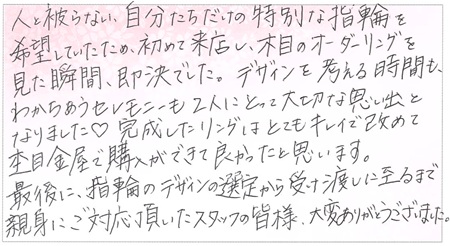 人と被らない、自分たちだけの特別な指輪を
希望していたため、初めて来店し、木目のオーダーリングを
見た瞬間、即決でした。デザインを考える時間も、
わかちあうセレモニーも2人にとって大切な思い出と
なりました♡ 完成したリングはとてもキレイで改めて
杢目金屋で購入ができて良かったと思います。
最後に、指輪のデザインの選定から受け渡しに至るまで
親身にご対応頂いたスタッフの皆様、大変ありがとうございました。